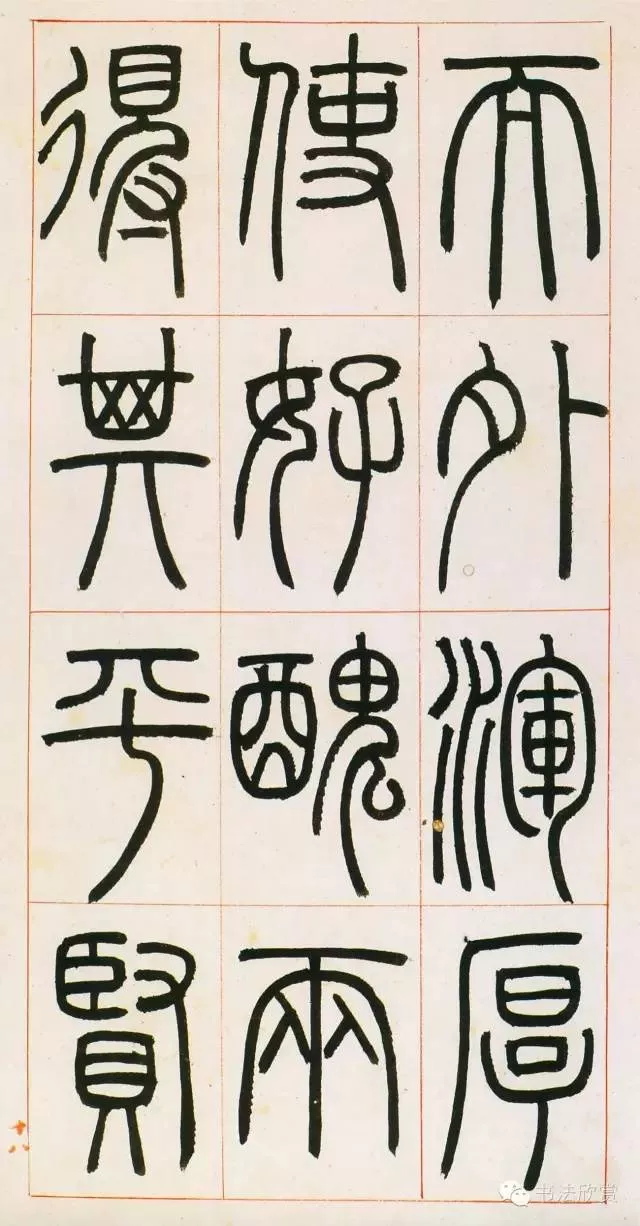 而外渾厚
使好醜兩
得其平賢
十八
书法欣赏